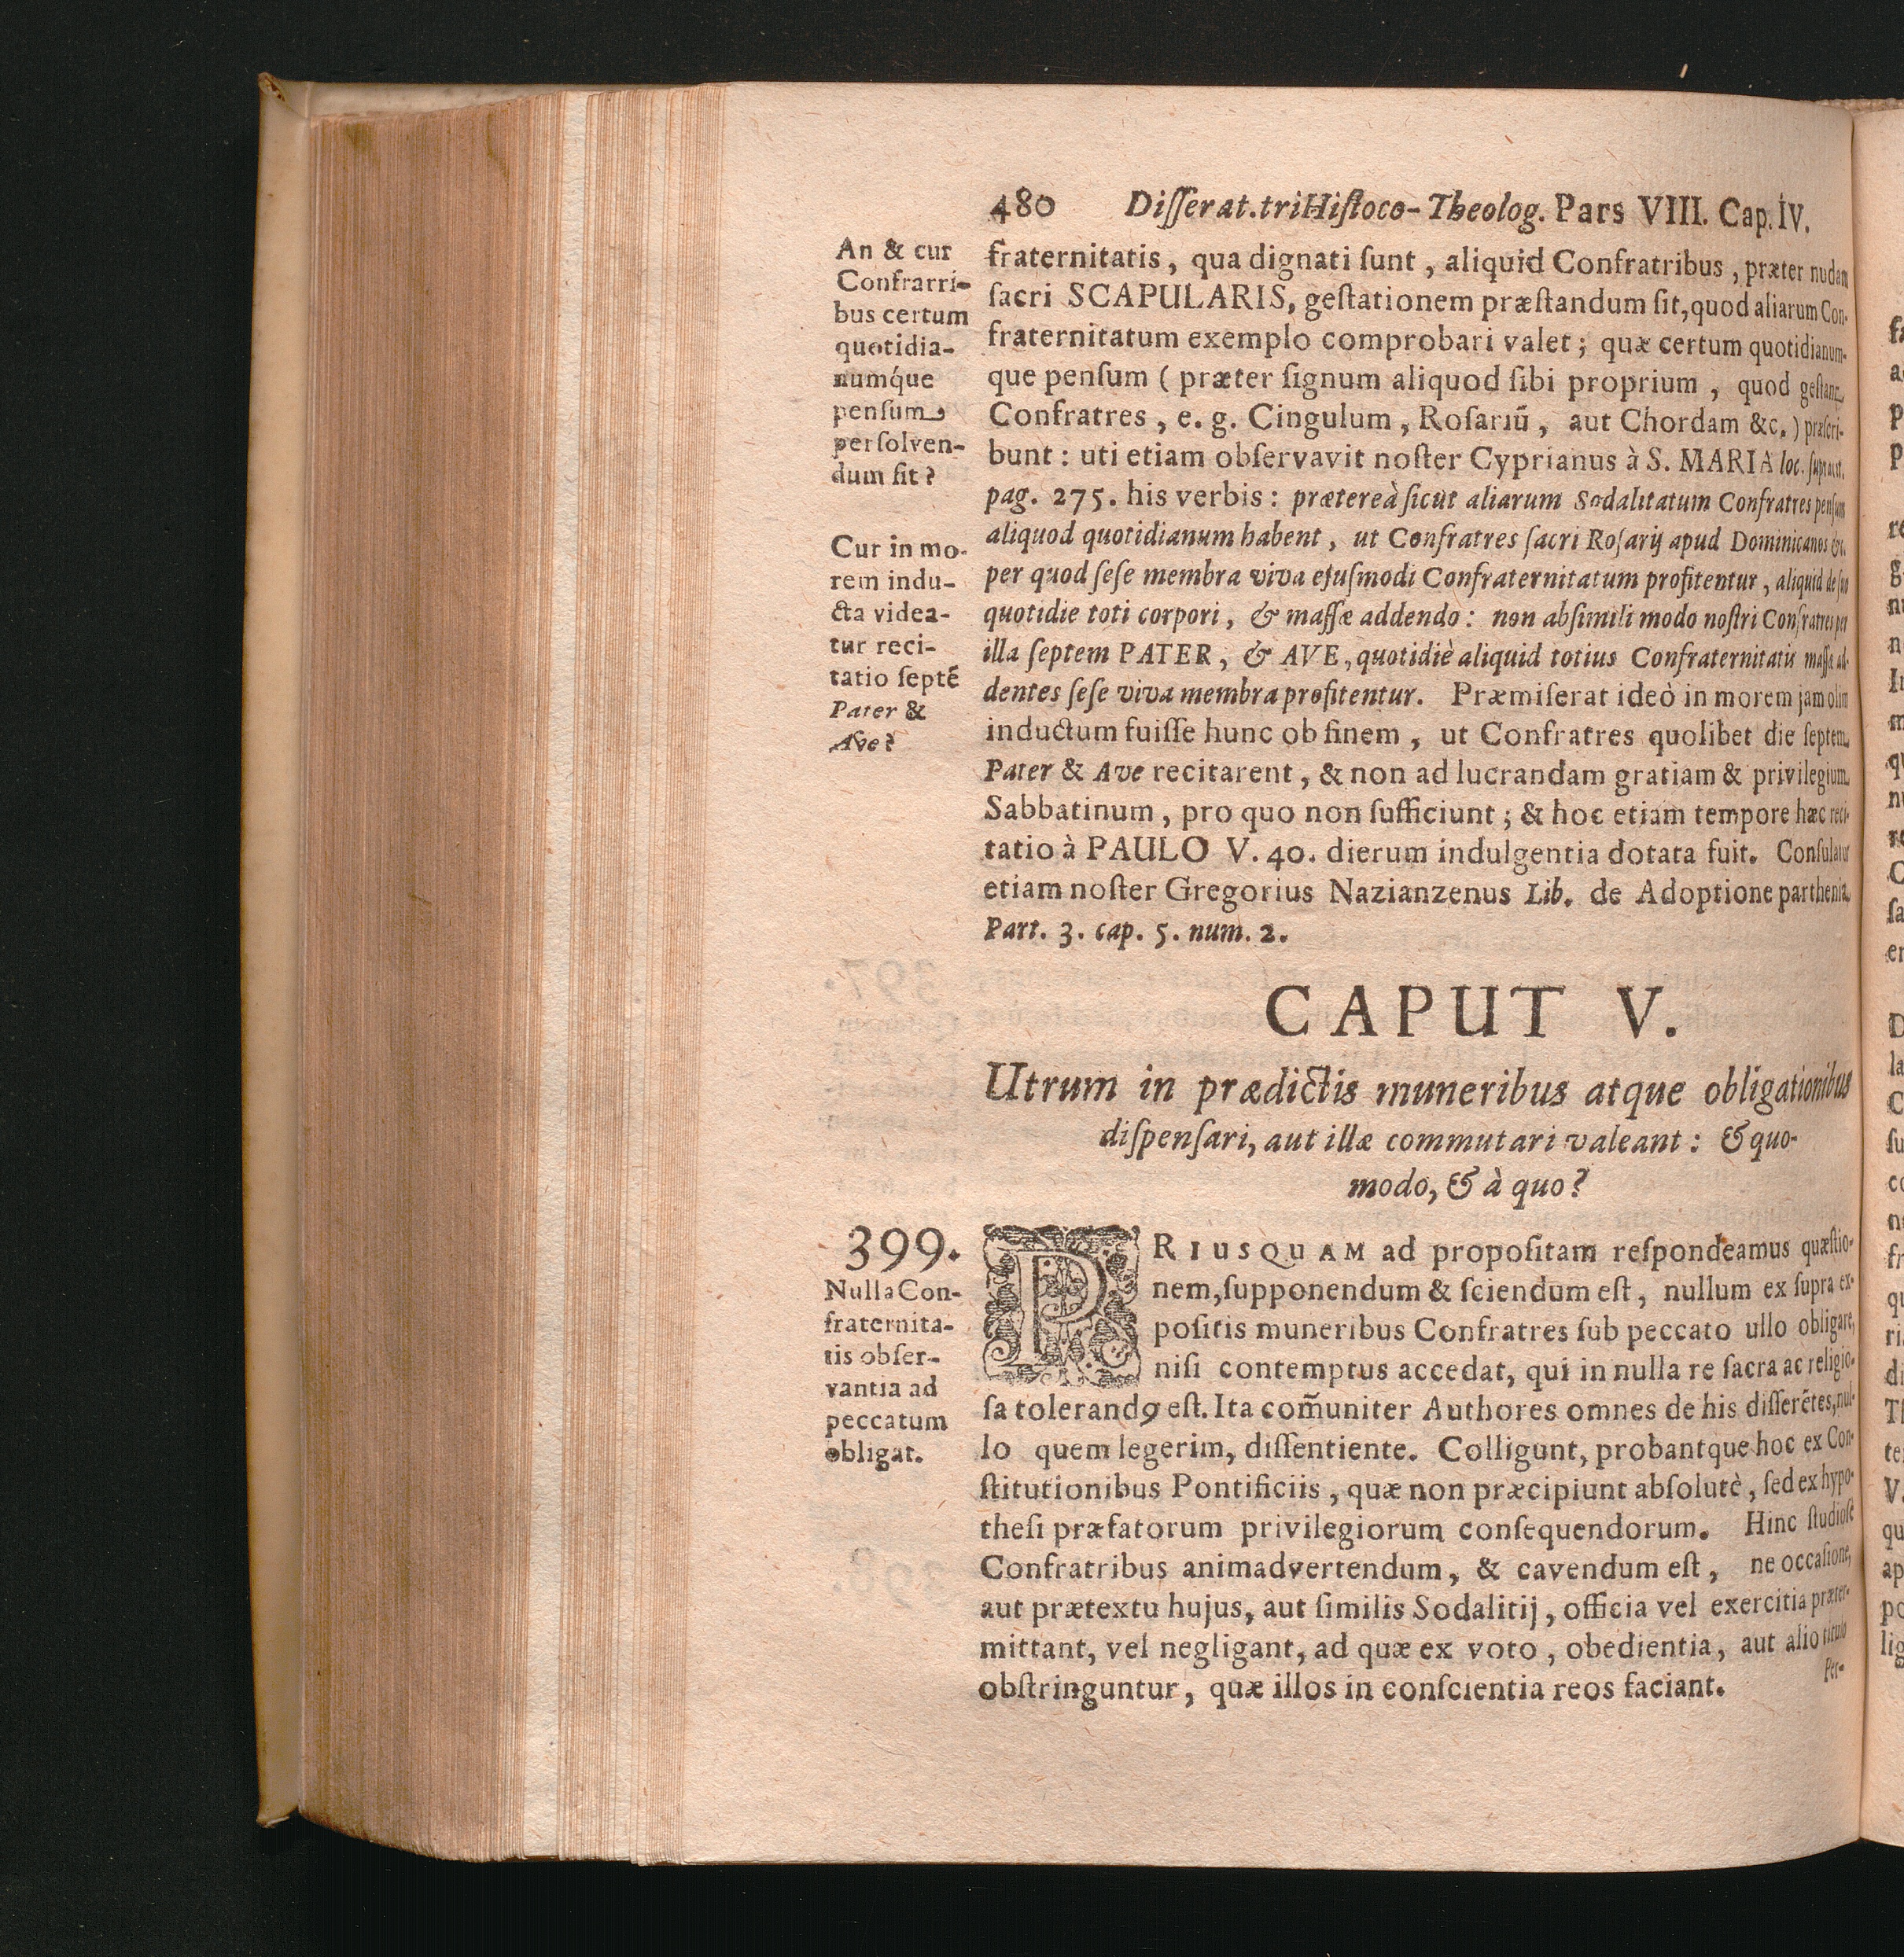 480 Disserat.triHistoco-Theolog. Pars VIII. Cap. IV.
An & cur
Confrarri-
bus certum
quotidia-
numq́ue
pensum
persolven-
dum sit?
Cur in mo-
rem indu-
cta videa-
tur reci-
tatio septẽ
Pater &
Ave?
fraternitatis, qua dignati sunt, aliquid Confratribus, præter nudam
sacri SCAPULARIS, gestationem præstandum sit, quod aliarum Con-
fraternitatum exemplo comprobari valet; quæ certum quotidianum-
que pensum ( præter signum aliquod sibi proprium, quod gestant
Confratres, e. g. Cingulum, Rosariũ, aut Chordam &c. ) præscri-
bunt: uti etiam observavit noster Cyprianus à S. MARIA loc. supra cit.
pag. 275. his verbis: prætereà sicut aliarum Sodalitatum Confratres pensum
aliquod quotidianum habent, ut Confratres sacri Rosarij apud Dominicanos &c.
per quod sese membra viva ejusmodi Confraternitatum profitentur, aliquid de suo
quotidie toti corpori, & massæ addendo: non absimili modo nostri Confratres per
illa septem PATER, & AVE, quotidiè aliquid totius Confraternitatis massæ ad-
dentes sese viva membra profitentur. Præmiserat ideò in morem jam olim
inductum fuisse hunc ob finem, ut Confratres quolibet die septem
Pater & Ave recitarent, & non ad lucrandam gratiam & privilegium
Sabbatinum, pro quo non sufficiunt; & hoc etiam tempore hæc reci-
tatio à PAULO V. 40. dierum indulgentia dotata fuit. Consulatur
etiam noster Gregorius Nazianzenus Lib. de Adoptione parthenia
Part. 3. cap. 5. num. 2.
CAPUT V.
Utrum in prædictis muneribus atque obligationibus
dispensari, aut illæ commutari valeant: & quo-
modo, & à quo?
399.
Nulla Con-
fraternita-
tis obser-
vantia ad
peccatum
obligat.
PRIUSQUAM ad propositam respondeamus quæstio-
nem, supponendum & sciendum est, nullum ex supra ex-
positis muneribus Confratres sub peccato ullo obligare,
nisi contemptus accedat, qui in nulla re sacra ac religio-
sa tolerandꝯ est. Ita com̃uniter Authores omnes de his disserẽtes, nul-
lo quem legerim, dissentiente. Colligunt, probantque hoc ex Con-
stitutionibus Pontificiis, quæ non præcipiunt absolutè, sed ex hypo-
thesi præfatorum privilegiorum consequendorum. Hinc studiosè
Confratribus animadvertendum, & cavendum est, ne occasione,
aut prætextu hujus, aut similis Sodalitij, officia vel exercitia præter-
mittant, vel negligant, ad quæ ex voto, obedientia, aut alio titulo
obstringuntur, quæ illos in conscientia reos faciant.
Per-